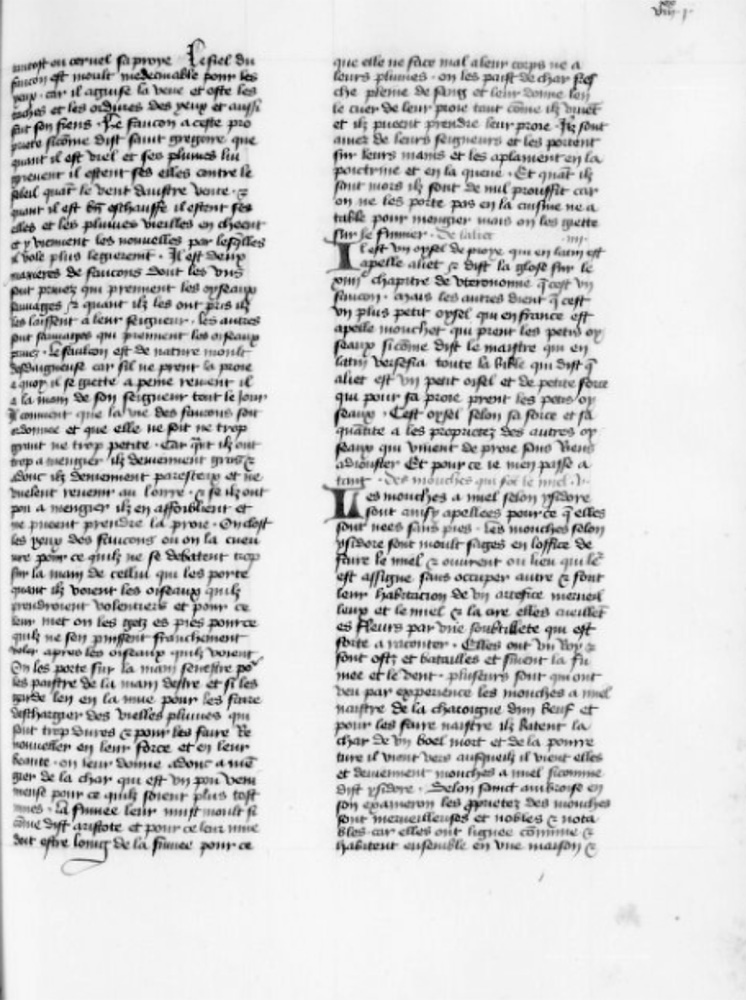 xx
viii . i
ou cervel sa proye Le fiel du
faucon est moult medecinable pour les
yeux . car il aguise la veue et oste les
taches et les ordures des yeux et aussi
fait son fiens . Le faucon a ceste pro
priete sicome dist saint gregoire que
quant il est viel et ses plumes lui
grievent il estent ses elles contre le
soleil quant le vent daustre vente . et
quant il est bien eschauffe il estent ses
elles et les plumes vieilles en cheent
et y viennent les nouvelles par lesquelles
il vole plus legierement . Il est deux
manieres de faucons dont les uns
sont privez qui prennent les oyseaux
sauvages et quant ilz les ont pris ilz
les laissent a leur seigneur . les autres
sont sauvages qui prennent les oiseaux
privez . le faulcon est de nature moult
desdaigneuse car sil ne prent la proie
a quoy il se giette a peine revient il
a la main de son seigneur tout le jour
Il convient que la vie des faucons soit
ordonnee et que elle ne soit ne trop
grant ne trop petite . Car quant ilz ont
trop a mengier ilz deviennent gras et
donc ilz deviennent paresseux et ne
veulent revenir au loirre . et se ilz ont
pou a mengier ilz en affoiblient et
ne pueent prendre la proie . On clost
les yeux des faucons ou on la cueu
vre pour ce quilz ne se debatent trop
sur la main de cellui qui les porte
quant ilz voient les oiseaux quilz
prendroient volentiers et pour ce
leur met on les getz es pies pource
quilz ne sen puissent franchement
voler apres les oiseaux quilz voient
On les porte sur la main senestre pour
les paistre de la main destre et si les
garde len en la mue pour les faire
deschargier des vielles plumes qui
sont trop dures et pour les faire re
nouveller en leur force et en leur
beaute . on leur donne adonc a men
gier de la char qui est un pou veni
meuse pour ce quilz soient plus tost
muez . la fumee leur nuist moult si
come dist aristote et pour ce leur mue
doit estre loing de la fumee pour ce
que elle ne face mal a leur corps ne a
leurs plumes . on les paist de char fres
che pleine de sang et leur donne len
le cuer de leur proie tant come ilz vivent
et ilz pueent prendre leur proie . Ilz sont
amez de leurs seigneurs et les portent
sur leurs mains et les aplanient en la
poictrine et en la queue . Et quant ilz
sont mors ilz sont de nul prouffit car
on ne les porte pas en la cuisine ne a
table pour mengier mais on les giette
sur le fumier . De laliet .iiii.
Il est un oysel de proye qui en latin est
apelle aliet et dist la glose sur le
xiiii chapitre de uteronome que cest un
faucon . Mais les autres dient que cest
un plus petit oysel qui en france est
apelle mouchet qui prent les petis oy
seaux sicome dist le maistre qui en
latin versefia toute la bible qui dist que
aliet est un petit oisel et de petite force
qui pour sa proie prent les petis oy
seaux . Cest oysel selon sa force et sa
quantite a les proprietez des autres oy
seaux qui vivent de proie sans riens
adiouster Et pour ce ie men passe a
tant . Des mouches qui font le miel . v.
Les mouches a miel selon ysidore
sont ainsy apellees pource que elles
sont nees sans pies . les mouches selon
ysidore sont moult sages en loffice de
faire le miel et euvrent ou lieu qui leur
est assigne sans occuper autre et font
leur habitacion de un artefice merveil
leux et le miel et la cire elles cueillent
es fleurs par une soubtillete qui est
forte a raconter . Elles ont un roy et
font ostz et batailles et fuient la fu
mee et le vent . plusieurs sont qui ont
veu par experience les mouches a miel
naistre de la charoigne dun beuf et
pour les faire naistre ilz batent la
char de un boel mort et de la pourre
ture il vient vers ausquelz il vient elles
et deviennent mouches a miel sicomme
dist ysidore . Selon sainct ambroise en
son exameron les proprietez des mouches
sont merveilleuses et nobles et nota
bles car elles ont lignee comune et
habitent ensemble en une maison et